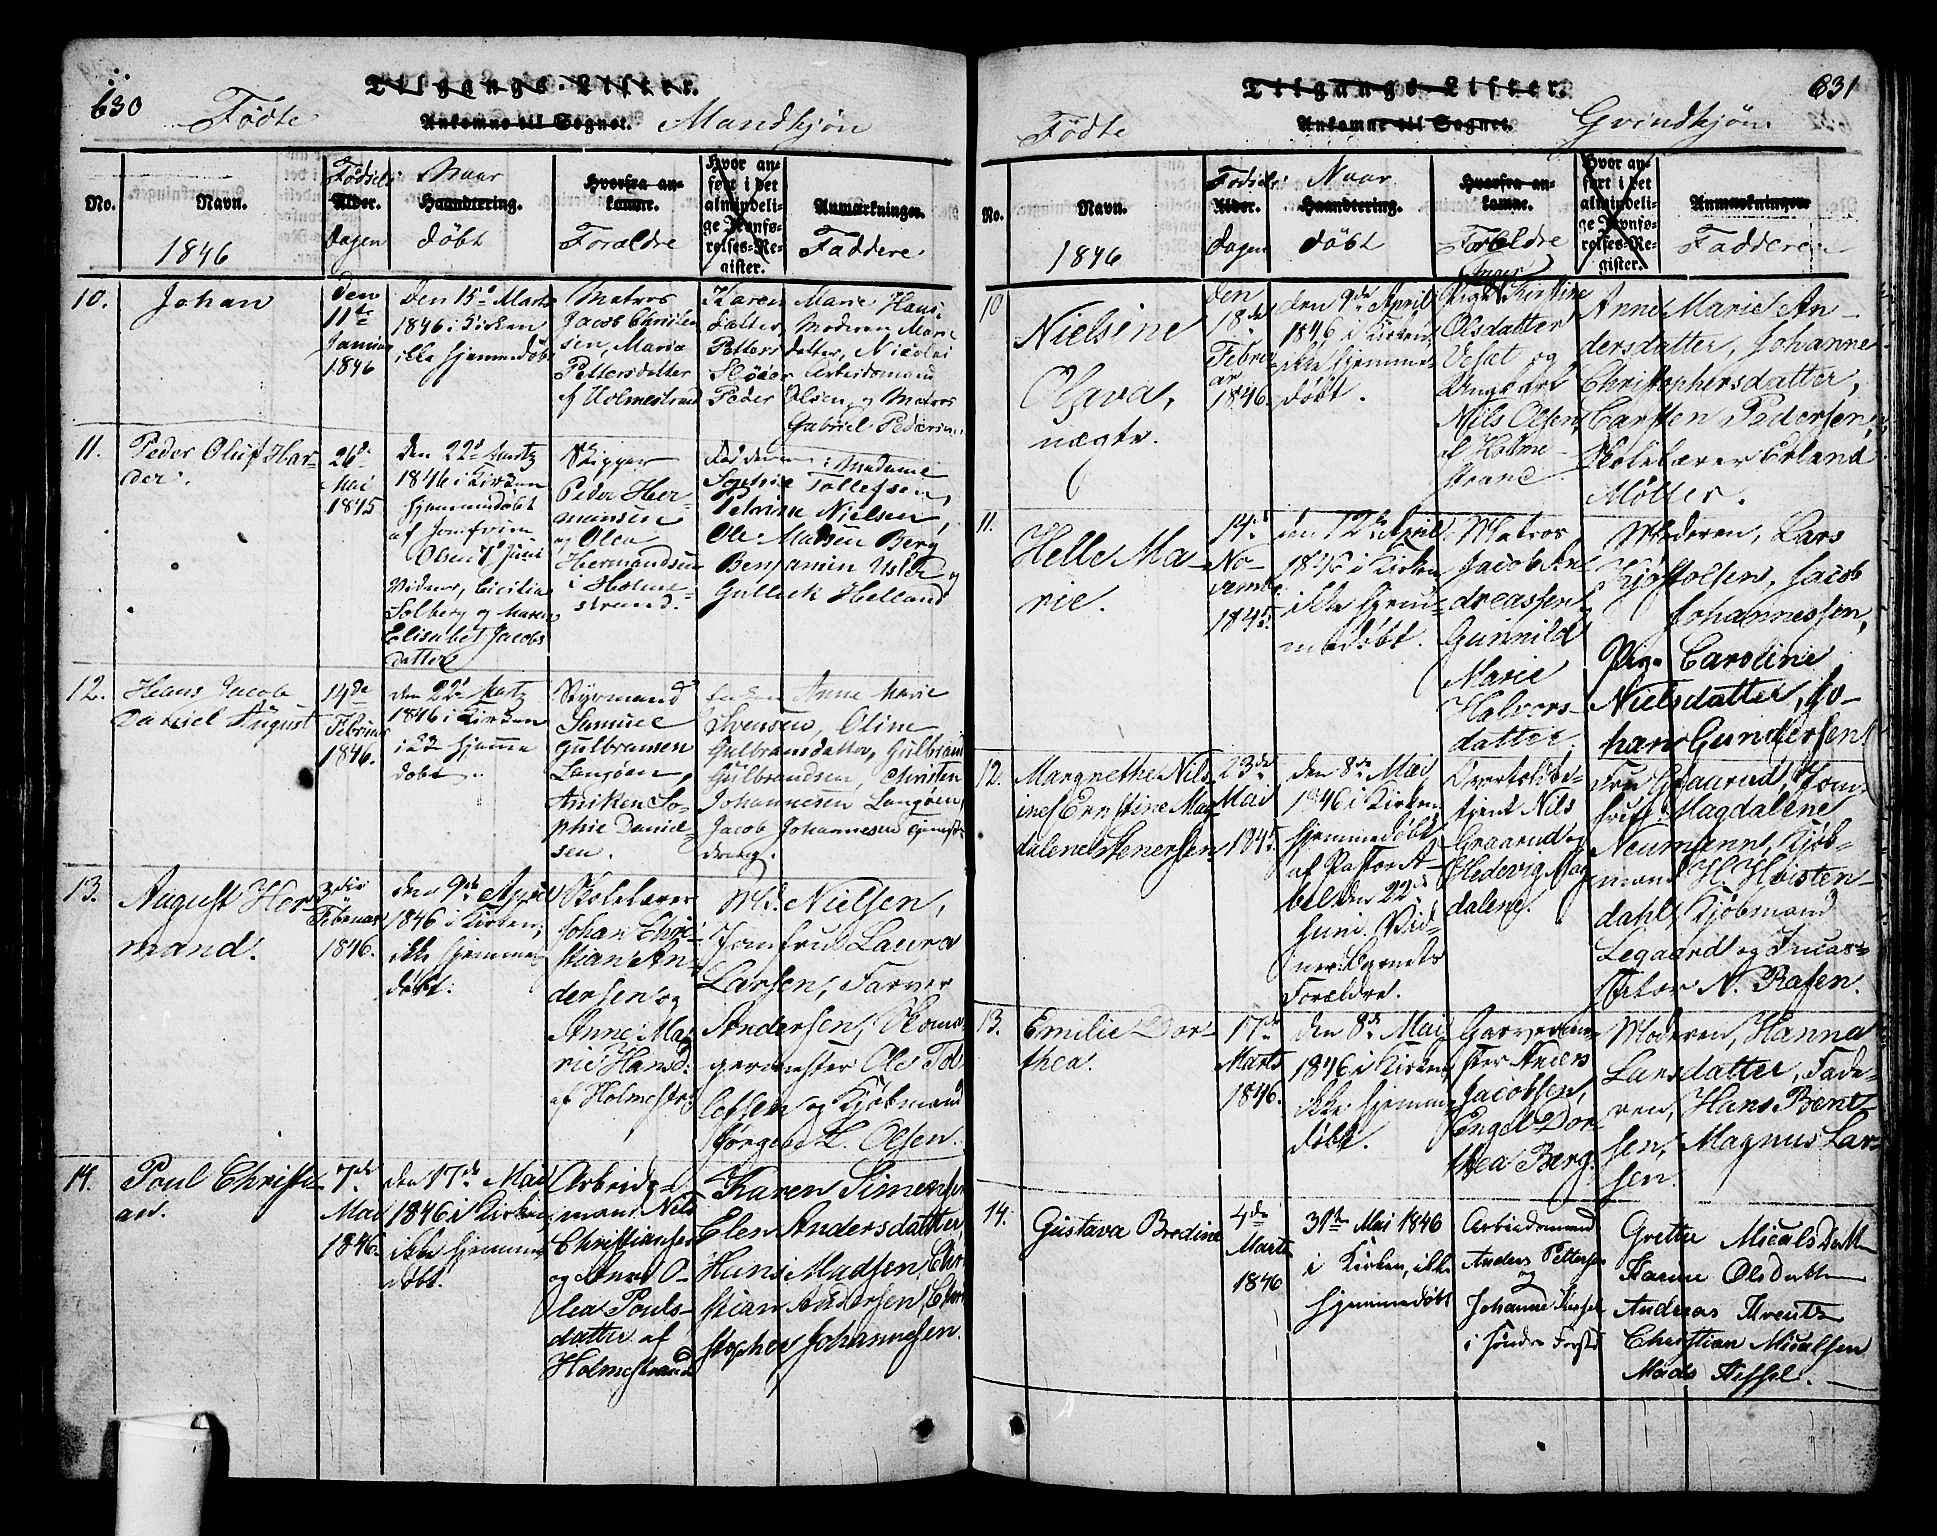 630
Tilgangs-Lister.
Fødte
Ankomne til Sognet.
Mandkjøn
No.
Navn.
1846
Fødsels
Alder.
dagen
Naar
Haandtering.
døbt
Hvorfra an-
komne.
Forældre
Hvor an-
ført i det
almindeli-
ge Jevnfø-
relses-Re-
gister.
Anmærkninger.
Faddere.
10.
Johan
Den
11te
Januar
1846
Den 15de Marts
1846 i Kirken
ikke hjemmedøbt
Matros
Jacob Christen
sen, Maria
Pettersdatter
af Holmestrand
Karen Marie Hans
datter, Moderen, Marie
Petters datter, Nicolai
Arbeidsmand
Peder Olsen, og Matros
Gabriel Pedersen.
11.
Peder Oluf Har-
der.
26de
Mai
1845
den 22de Martz
1846 i Kirken
hjemmedøbt
af Jomfru
Olsen Juni
Vidner, Cicilia
Solberg og Maren
Elisabet Jacobs
datter
Skipper
Peder Her-
mansen
og Olea
Hermandsen
i Holme-
strand.
Fadderne: Madame
Sophie Tollefsen,
Petrine Nielsen,
Ole Madsen Berg
Benjamin og
Gulleik Helland
12.
Hans Jacob
Daniel August
14de
Februar
1846.
den 22de Martz
1846 i Kirken
hjemme
døbt
Styrmand
Samuel
Gulbransen
Langøen,
Aniken So-
phie Daniel-
sen.
Anne Marie
Svensen, Oline
Gulbransdatter, Gulbrand
Gulbrandsen, Christen
Johannesen Langøen,
Jacob Johannesen
13.
August Her-
mand.
3die
Februar
1846.
den 9de April
1846 i Kirken,
ikke hjemme
døbt.
Skolelærer
Johan Chri-
stian An-
dersen og
Anne Ma-
rie Hansd.
af Holmestr.
Md. Nielsen,
Jomfru Laura
Larsen, Farver
Andersen, Skoma-
germester Ole Tol-
lefsen og Kjøbmand
Jørgen L. Olsen.
14.
Poul Christi-
an.
7de
Mai
1846.
den 17de Mai
1846 i Kirken
ikke hjemme
døbt.
Arbeids-
mand Nils
Christiansen
og Anne O-
lea Pouls-
datter af
Holmestrand
Karen Simensen
Elen Andersdatter,
Hans Madsen, Chri-
stian Andersen, Chri-
stopher Johannesen.
631
Tilgangs-Lister.
Fødte
Ankomne til Sognet.
Qvindkjøn.
No.
Navn.
1846
Fødsels
Alder.
dagen
Naar
Haandtering.
døbt
Hvorfra an-
komne.
Forældre
Hvor an-
ført i det
almindeli-
ge Jevnfø-
relses-Re-
gister.
Anmærkninger.
Fadderen
10
Nielsine
Olava,
uægte.
Den
18de
Febru
ar
1846.
den 9de April
1846 i Kirken,
ikke hjemme
døbt.
Inger
Pige Kirstine
Olsdatter
og
Ungkarl
Nils Olsen,
af Holme-
strand.
Anne Marie An-
dersdatter, Johanne
Christophersdatter,
Carsten Pedersen,
Skolelærer Erland
Møller.
11.
Helle Ma-
rie.
14de
No-
vembr
1845.
den 12te April
1846 i Kirken
ikke hjem-
medøbt.
Matros
Jacob An
dreassen
Gunnild
Marie
Halvors-
datter.
Moderen, Lars
Kjøstolsen, Jacob
Johannessen,
Pige Caroline
Nielsdatter, Jo-
han Gundersen
12.
Margrethe Nils
ine Ernstine Mag-
dalene Stenersen
23de
Mai
1845.
den 8de Mai
1846 i Kirken,
hjemmedøbt
af Pastor A-
bel den 22de
Juni. Vid-
ner: Barnets
Forældre.
Overtoldbe-
tjent Nils
Graarud og
Hedevig Mag
dalene.
Fru Graarud, Jom-
fru Magdalene
Neumann, Kjøb-
mand H. Høisten-
dahl, Kjøbmand
Legaard og
N. Rafen.
13.
Emilie Dor-
thea.
17de
Marts
1846.
den 8de Mai
1846 i Kirken,
ikke hjemme
døbt.
Garverme-
ster Anders
Jacobsen,
Engel Dor-
thea Berg.
Moderen, Hanna
Larsdatter, Fade-
ren, Hans Bent-
sen, Magnus Lar-
sen.
14.
Gustava Bredine
4de
Marts
1846
31te Mai 1846
i Kirken, ikke
hjemmedøbt
Arbeidsmand
Anders Pettersen
og
Johanne
i Søndre
Grethe Micalsdatter
Karine Olsdatter
Andreas
Christian Micalsen
Mads